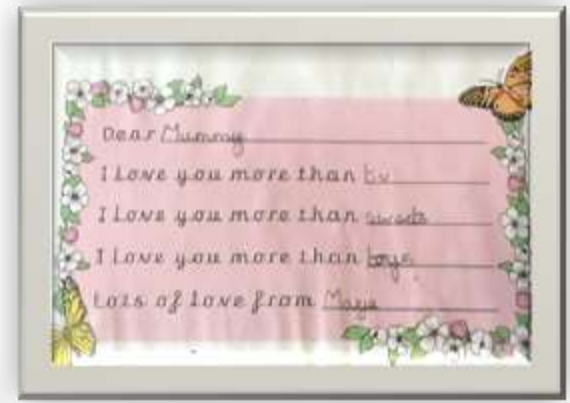 Dear Mummy
I Love you more than tv
I Love you more than sweets
I Love you more than toys
Lots of love from Maya